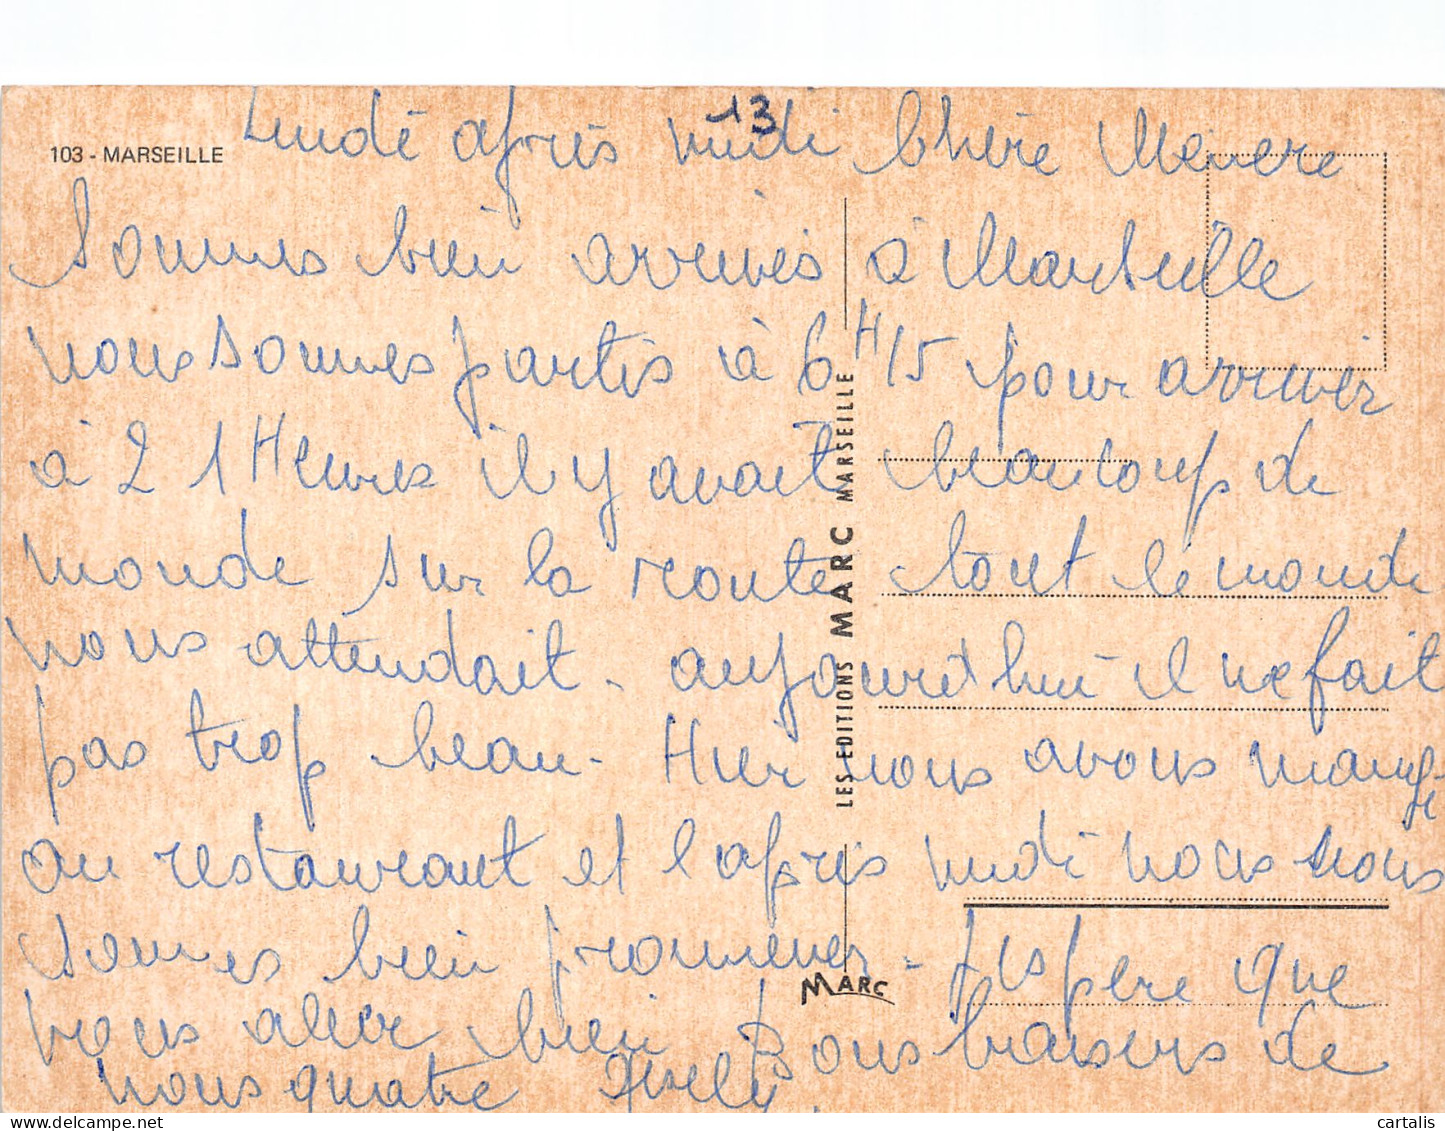 13
103 - MARSEILLE
Lundi après midi Chère Mémère
Sommes bien arrivés à Marseille
nous sommes partis à 6H15 pour arriver
à 21Heures il y avait beaucoup de
monde sur la route tout le monde
nous attendait - aujourd'hui il ne fait
pas trop beau - Hier nous avons mangé
au restaurant et l'après midi nous nous
sommes bien promener - J'espère que
vous allez bien Bons baisers de
nous quatre
LES EDITIONS MARC MARSEILLE
MARC
cartalis